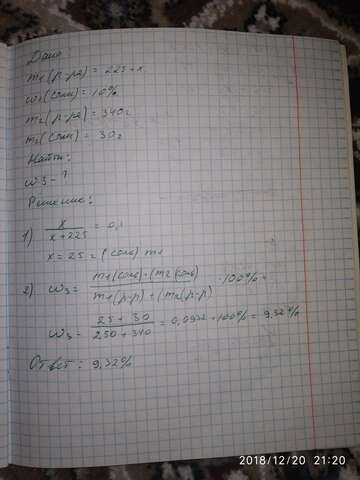 Дано:
m1(р-ра) = 225+x
w1(соли) = 10%
m2(р-ра) = 340г
m2(соли) = 30г
Найти:
w3 - ?
Решение:
1) x / x+225 = 0,1
x = 25 = (соль) m1
2) w3 = m1(соль)+(m2(соль) / m1(р-р)+(m2(р-р) · 100% =
w3 = 25+30 / 250+340 = 0,0932 · 100% = 9,32%
Ответ: 9,32%
2018/12/20 21:20